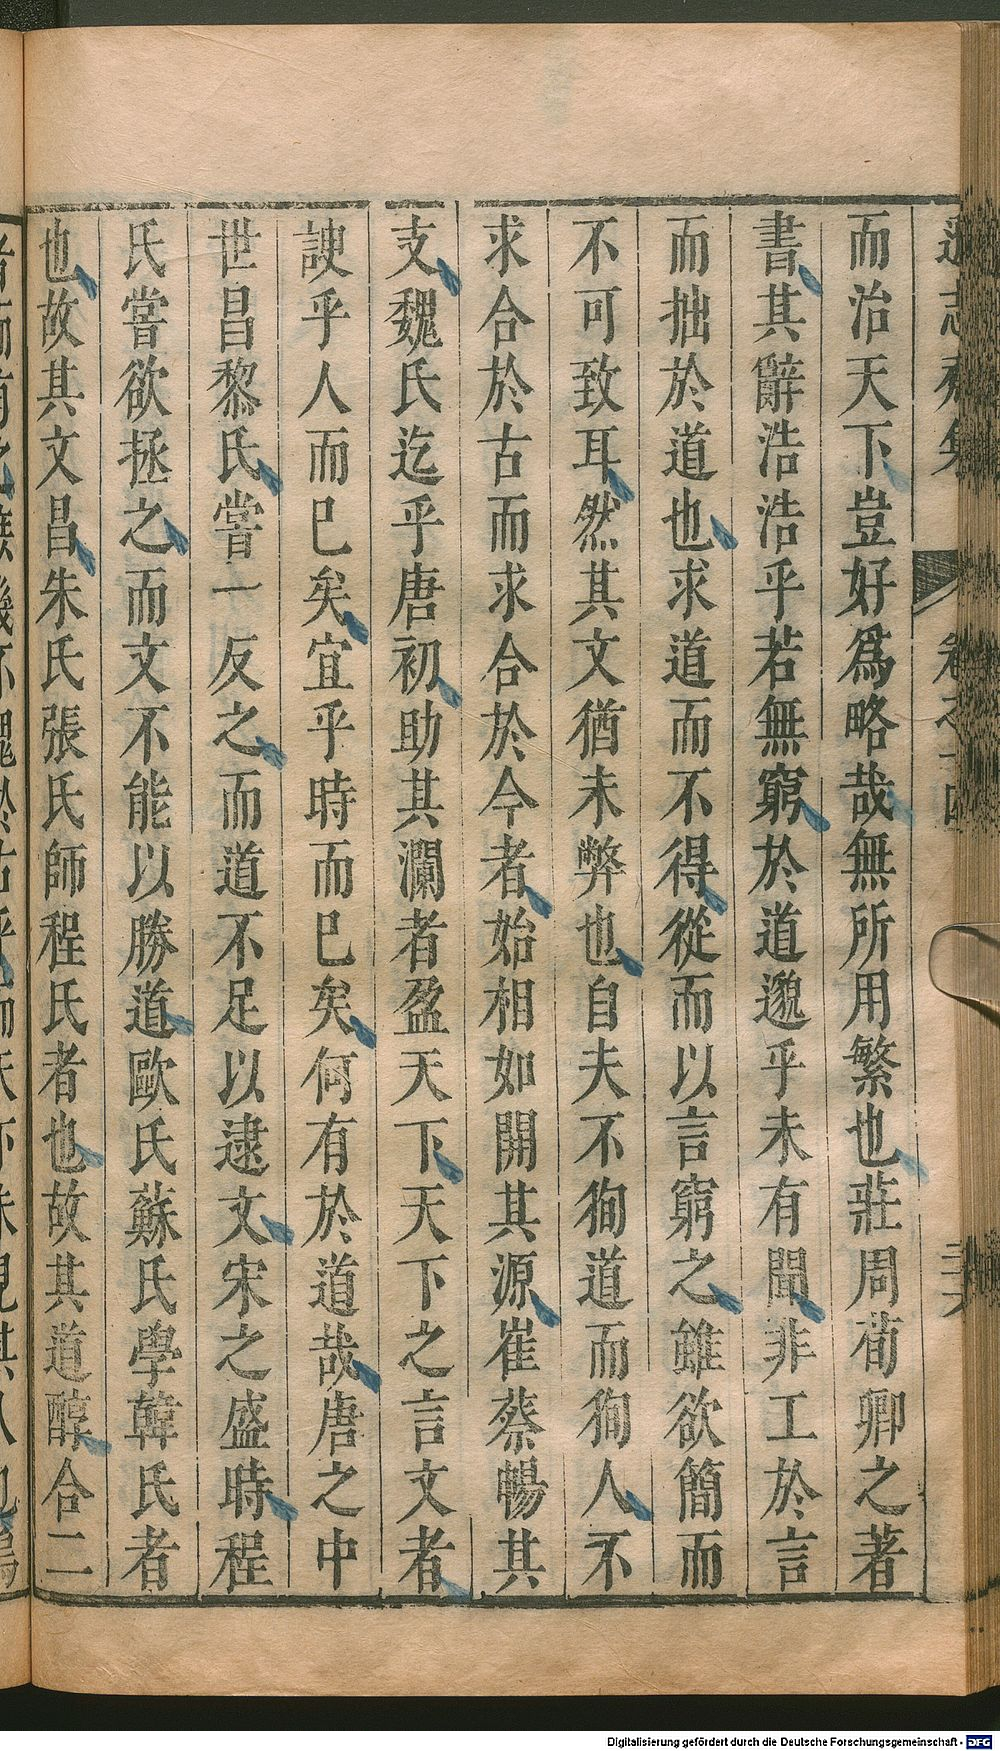 遜志齋集 卷之十四 三十六
而治天下豈好爲略哉無所用繁也莊周荀卿之著
書其辭浩浩乎若無窮於道邈乎未有聞非工於言
而拙於道也求道而不得從而以言窮之雖欲簡而
不可致耳然其文猶未弊也自夫不狥道而狥人不
求合於古而求合於今者始相如開其源崔蔡暢其
支魏氏迄乎唐初助其瀾者盈天下天下之言文者
諛乎人而巳矣宜乎時而巳矣何有於道哉唐之中
世昌黎氏嘗一反之而道不足以逮文宋之盛時程
氏嘗欲拯之而文不能以勝道歐氏蘇氏學韓氏者
也故其文昌朱氏張氏師程氏者也故其道醇合二
Digitalisierung gefördert durch die Deutsche Forschungsgemeinschaft - DFG